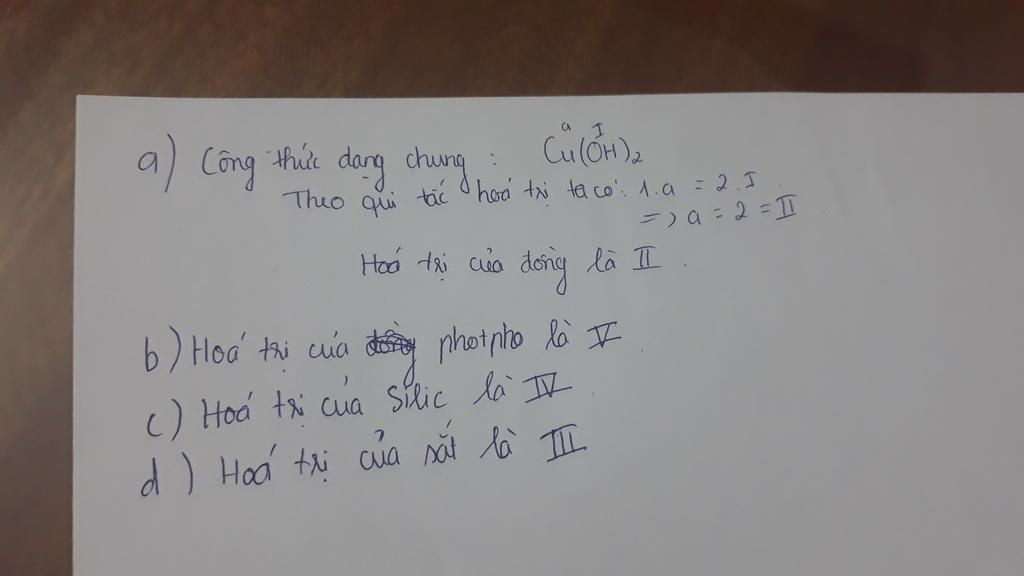 a) Công thức dạng chung : Cu(OH)₂
a I
Theo qui tắc hoá trị ta có: 1.a = 2.I
=> a = 2 = II
Hoá trị của đồng là II.
b) Hoá trị của photpho là V.
c) Hoá trị của Silic là IV.
d) Hoá trị của sắt là III